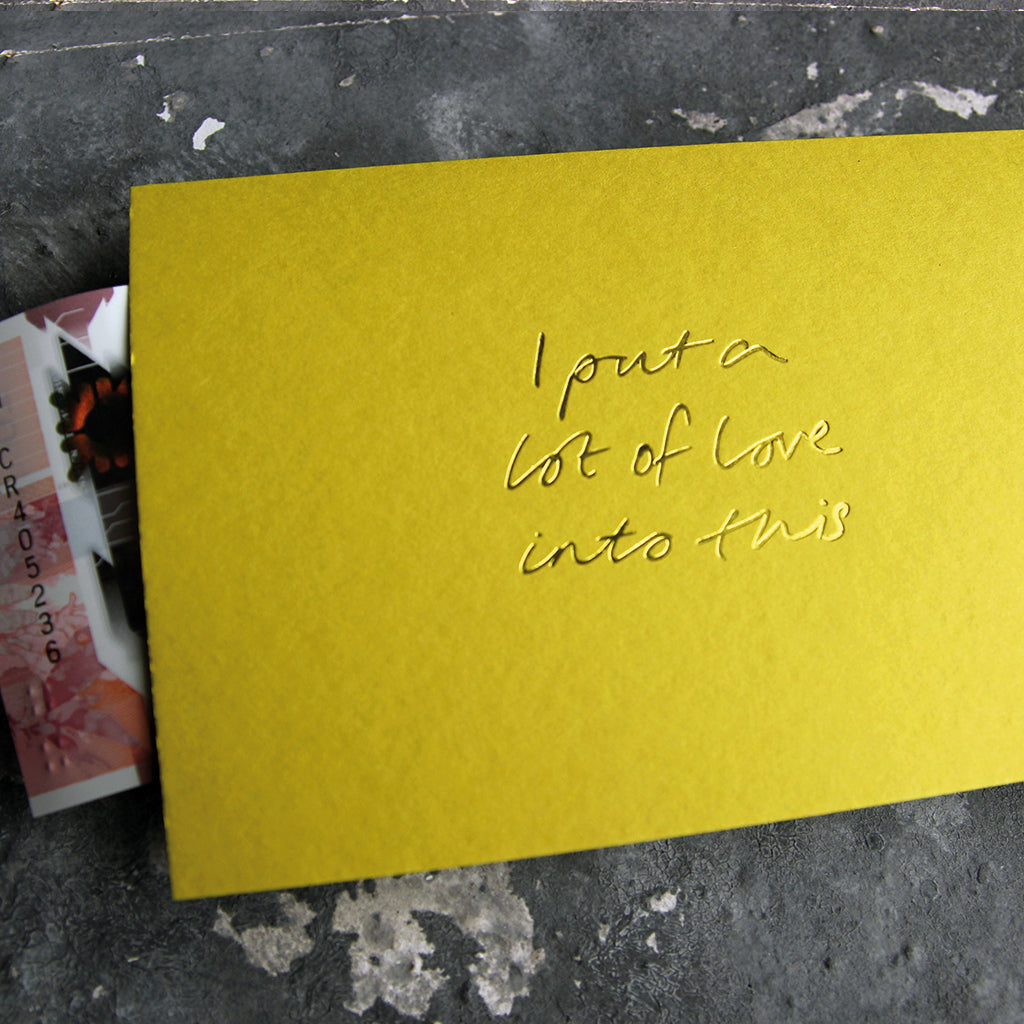 I put a
lot of love
into this
CR405236